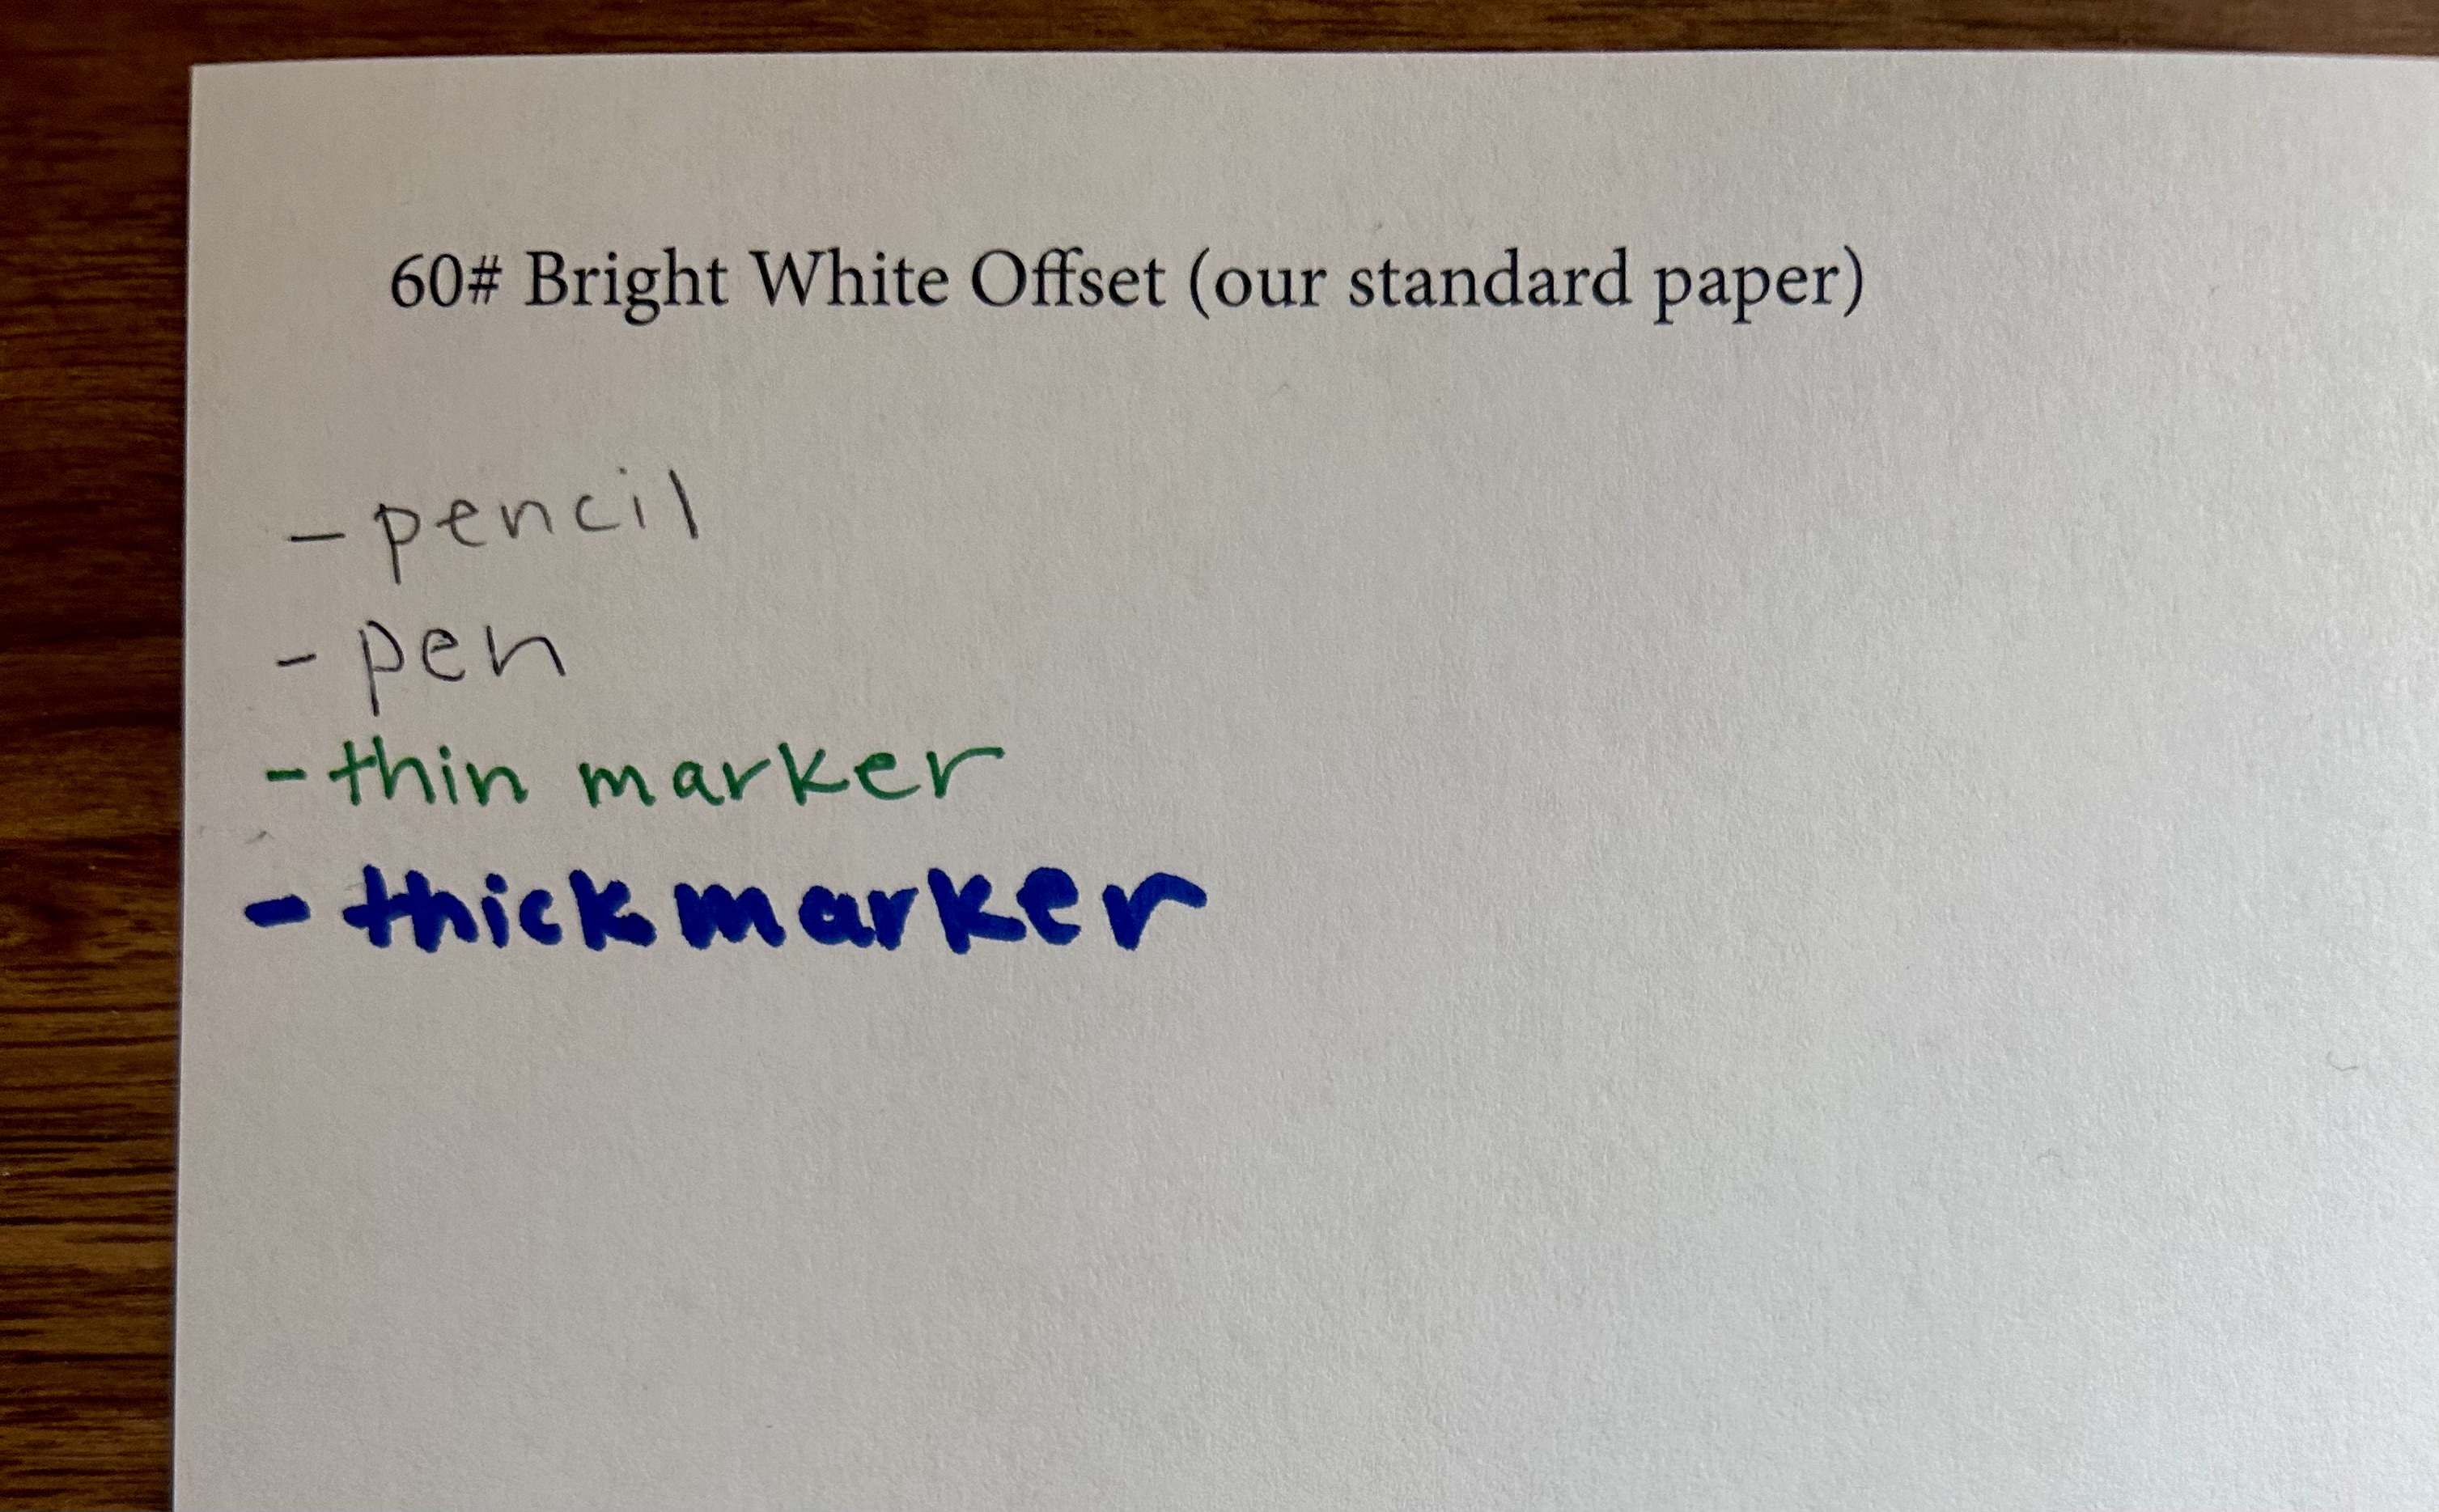 60# Bright White Offset (our standard paper)
- pencil
- pen
- thin marker
- thick marker